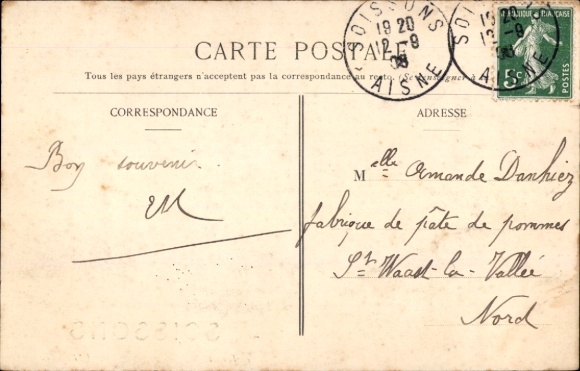 CARTE POSTALE
Tous les pays étrangers n'acceptent pas la correspondance au recto. (Se renseigner à
CORRESPONDANCE
ADRESSE
Bon souvenir
EM
Melle Armande Danhiez
fabrique de pâte de pommes
St Waast-la-Vallée
Nord
SOISSONS
19 20
12-9
08
AISNE
SOISSONS
19 20
12-9
08
AISNE
RÉPUBLIQUE FRANÇAISE
5c
POSTES